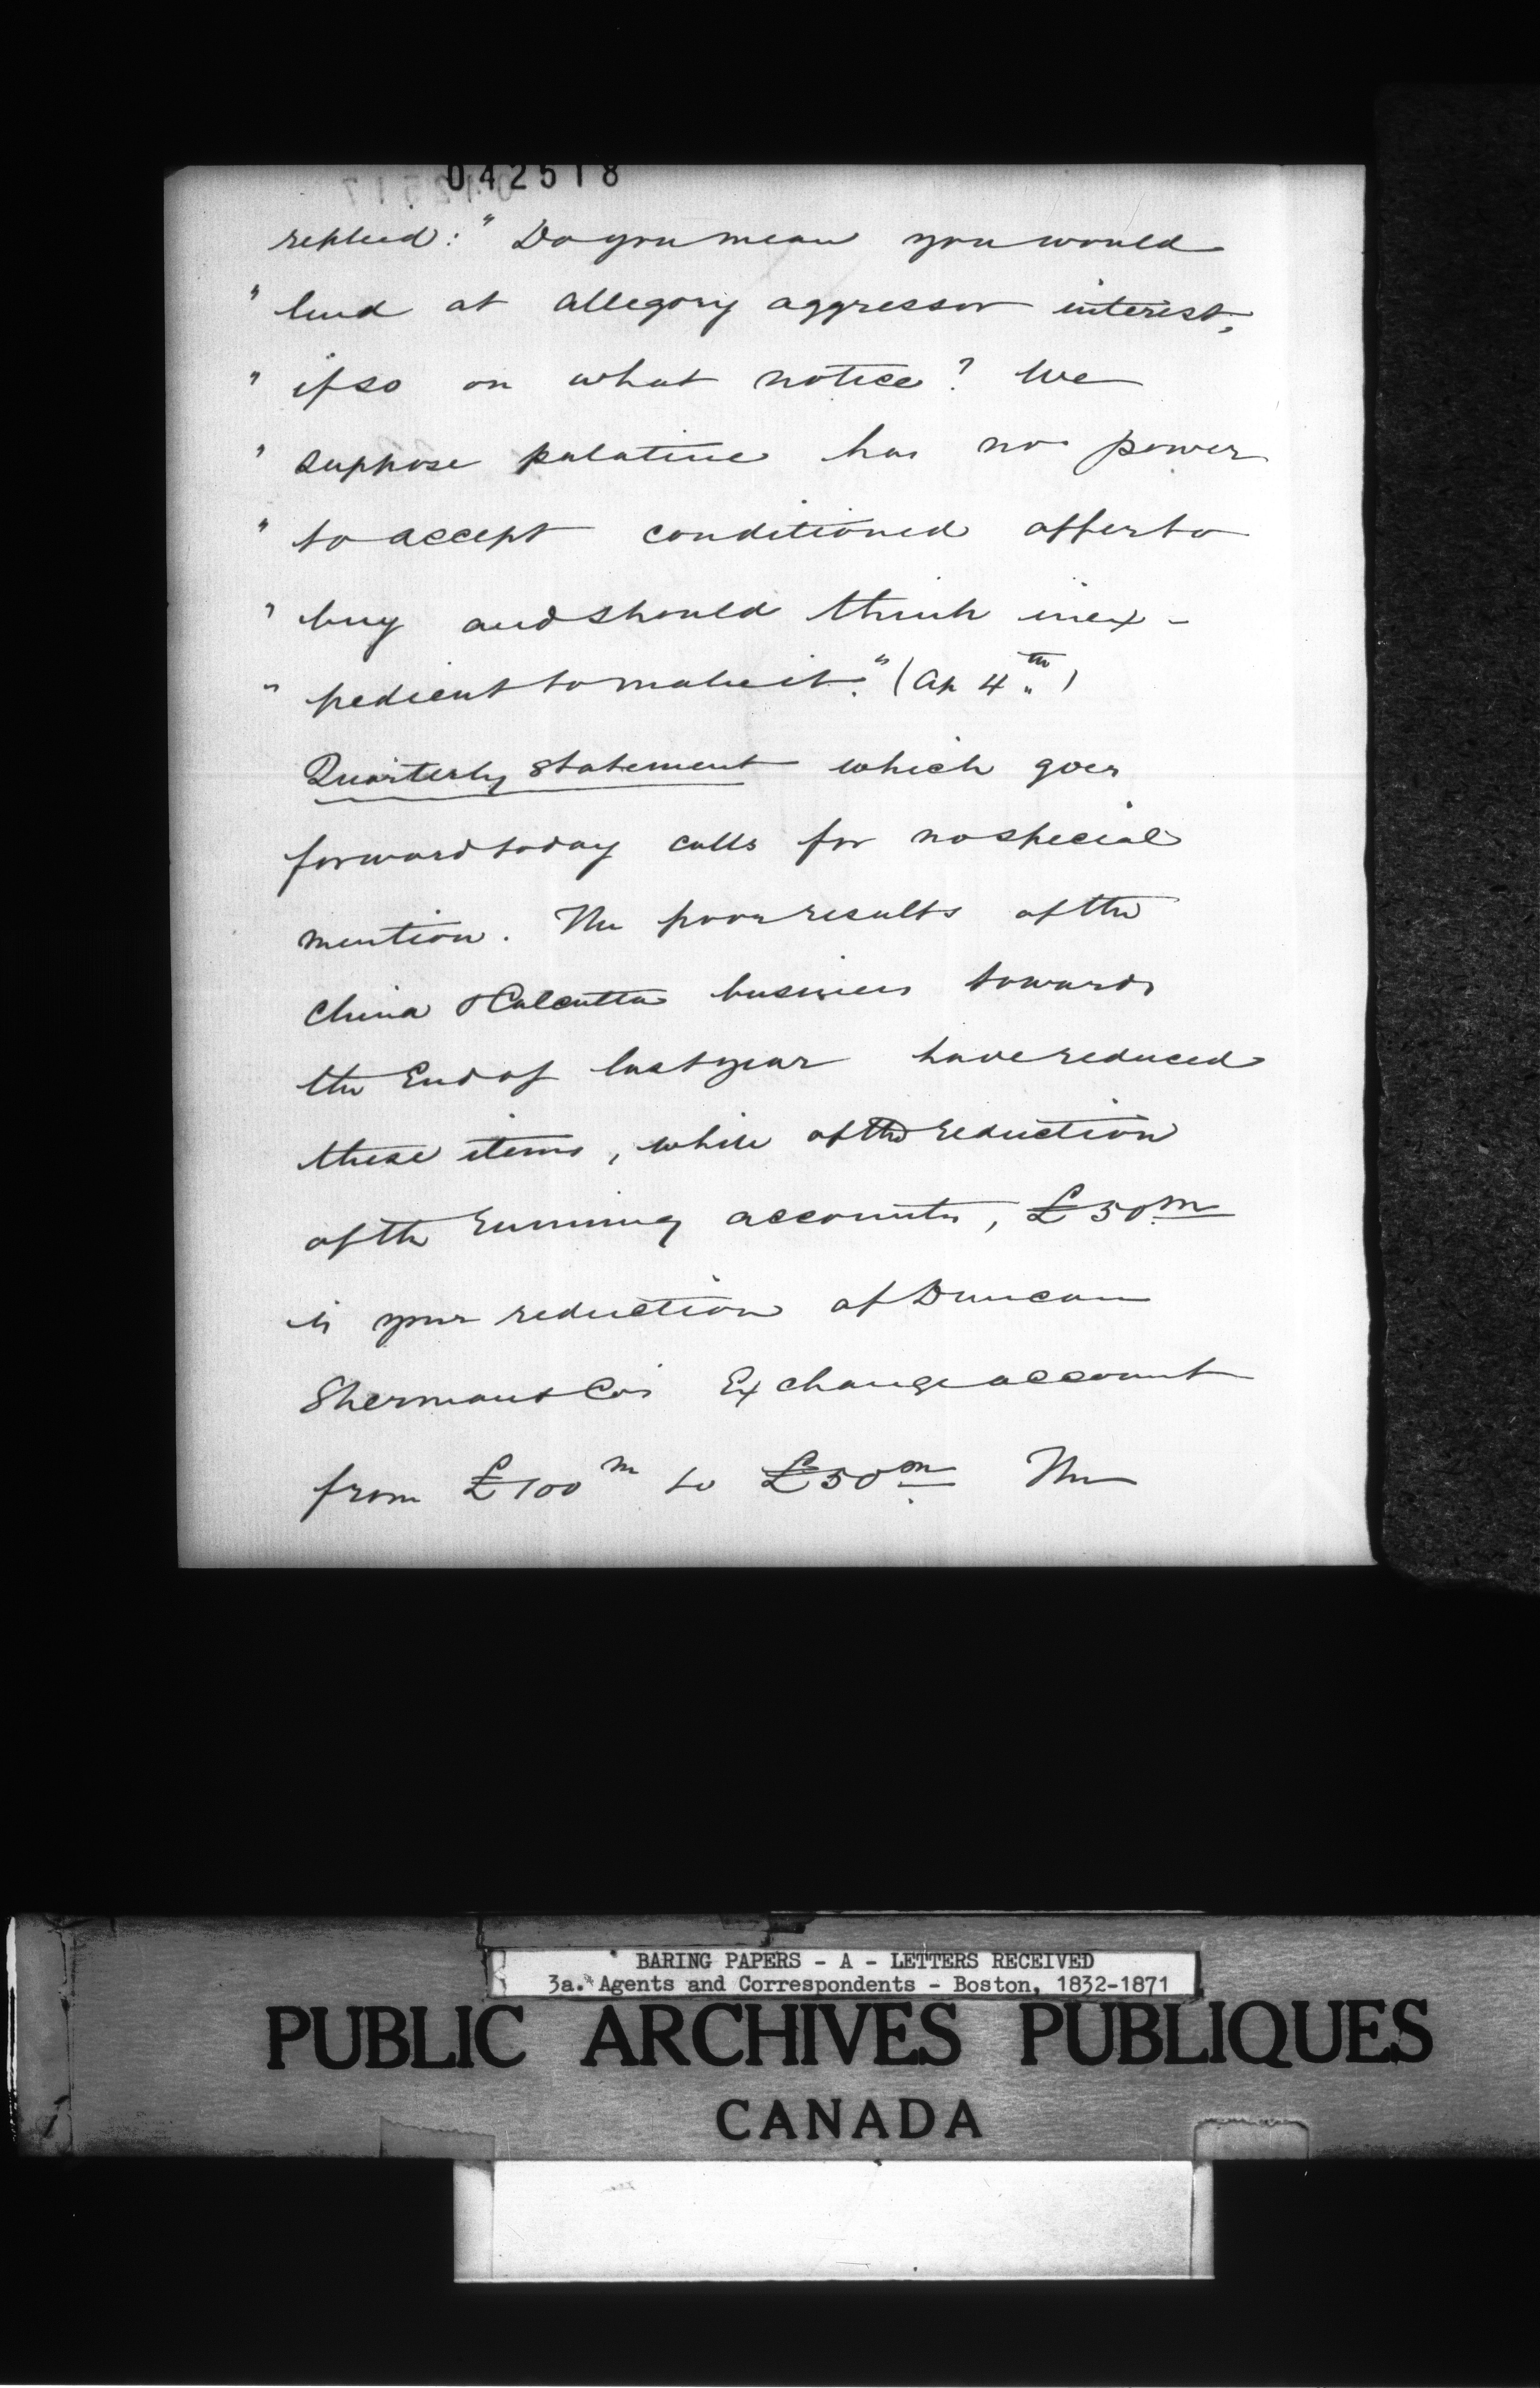 042518
replied: "Do you mean you would
" lend at allegory aggressor interest,
" if so on what notice? We
" suppose palatine has no power
" to accept conditioned offer to
" buy and should think inex-
" pedient to make it." (Ap 4th)
Quarterly Statement which goes
forward today calls for no special
mention. The poor results of the
China & Calcutta business towards
the End of last year have reduced
these items, while of the reduction
of the running accounts, £50m
is your reduction of Duncan
Sherman & Co's Exchange account
from £100m to £50m The
BARING PAPERS - A - LETTERS RECEIVED
3a. Agents and Correspondents - Boston, 1832-1871
PUBLIC ARCHIVES PUBLIQUES
CANADA